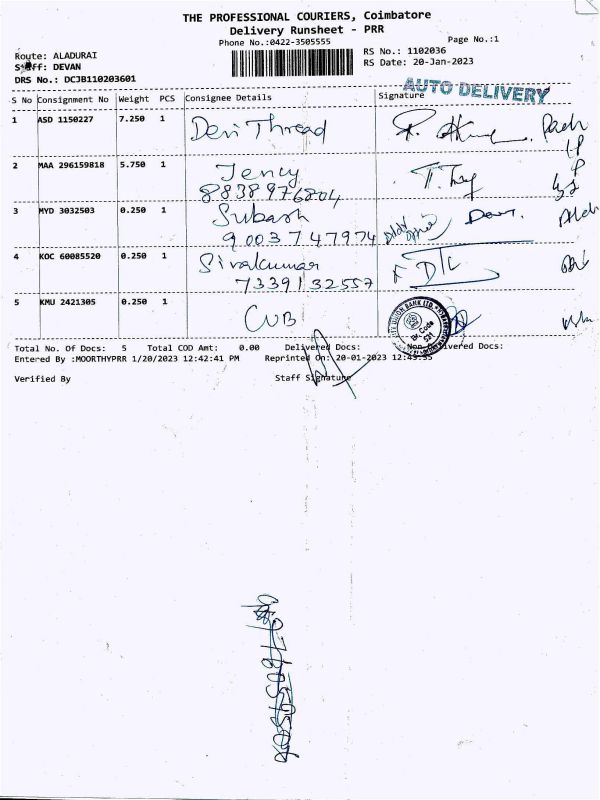 THE PROFESSIONAL COURIERS, Coimbatore
Delivery Runsheet - PRR
Phone No.:0422-3505555
Page No.:1
Route: ALADURAI
RS No.: 1102036
Staff: DEVAN
RS Date: 20-Jan-2023
DRS No.: DCJB110203601
AUTO DELIVERY
S No Consignment No Weight PCS Consignee Details Signature
1 ASD 1150227 7.250 1 Devi Thread
2 MAA 296159818 5.750 1 Jency
8838976804
3 MYD 3032503 0.250 1 Subash
9003747974
4 KOC 60085520 0.250 1 Sivakumar
7339132557
5 KMU 2421305 0.250 1 CUB
CITY UNION BANK LTD.
Br. Code
531
Total No. Of Docs: 5 Total COD Amt: 0.00 Delivered Docs: Non Delivered Docs:
Entered By :MOORTHYPRR 1/20/2023 12:42:41 PM Reprinted On: 20-01-2023 12:43:35
Verified By Staff Signature